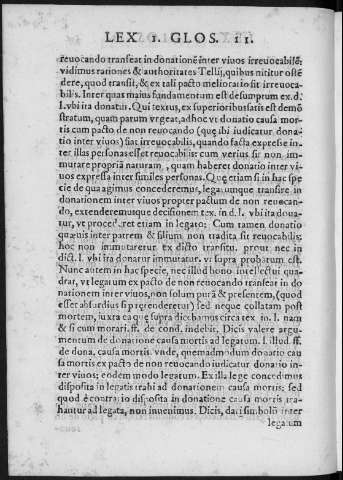 LEX 1. GLOS. 11.
reuocando transeat in donationẽ inter viuos irreuocabilẽ:
vidimus rationes & authoritates Tellij, quibus nititur ostẽ
dere, quod transit, & ex tali pacto melioratio sit irreuoca-
bilis. Inter quas maius fundamentum est desumptum ex.d.
l. vbi ita donatur. Qui textus, ex superioribus satis est demõ
stratum, quam parum vrgeat, adhoc vt donatio causa mor-
tis cum pacto de non reuocando (que ibi iudicatur dona-
tio inter viuos) fiat irreuocabilis, quando facta expresse in-
ter illas personas esset reuocabilis: cum verius sit non im-
mutare propriã naturam, quam haberet donatio inter vi-
uos expressa inter similes personas. Que etiam si in hac spe
cie de qua agimus concederemus, legatumque transire in
donationem inter viuos propter pactum de non reuocan-
do, extenderemusque decisionem tex. in d. l. vbi ita dona-
tur, vt procederet etiam in legato; Cum tamen donatio
quæuis inter patrem & filium non tradita sit reuocabilis;
hoc non immutaretur ex dicto transitu, prout nec in
dict. l. vbi ita donatur immutatur. vt supra probatum est.
Nunc autem in hac specie, nec illud bono intellectui qua
drar, vt legatum ex pacto de non reuocando transeat in do
nationem inter viuos, non solum purã & presentem, (quod
esset absurdius si pretenderetur) sed neque collatam post
mortem, iuxta ea que supra dicebamus circa tex. in l. nam
& si cum morari. ff. de cond. indebit. Dicis valere argu-
mentum de donatione causa mortis ad legatum. l. illud. ff.
de dona. causa mortis. vnde, quemadmodum donatio cau
sa mortis ex pacto de non reuocando iudicatur donatio in-
ter viuos; eodem modo legatum. Ex illa lege concedimus
disposita in legatis trahi ad donationem causa mortis; sed
quod è contrario disposita in donatione causa mortis tra-
hantur ad legata, non inuenimus. Dicis, dari simbolũ inter
legatum